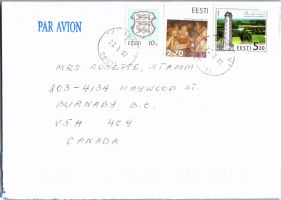 PAR AVION
EESTI 10 s
EESTI
2.20
EESTI 5.20
MRS. ROSETTE, STAMM
803-4134 MAYWOOD ST.
BURNABY, B.C.
V5H 4C9
CANADA